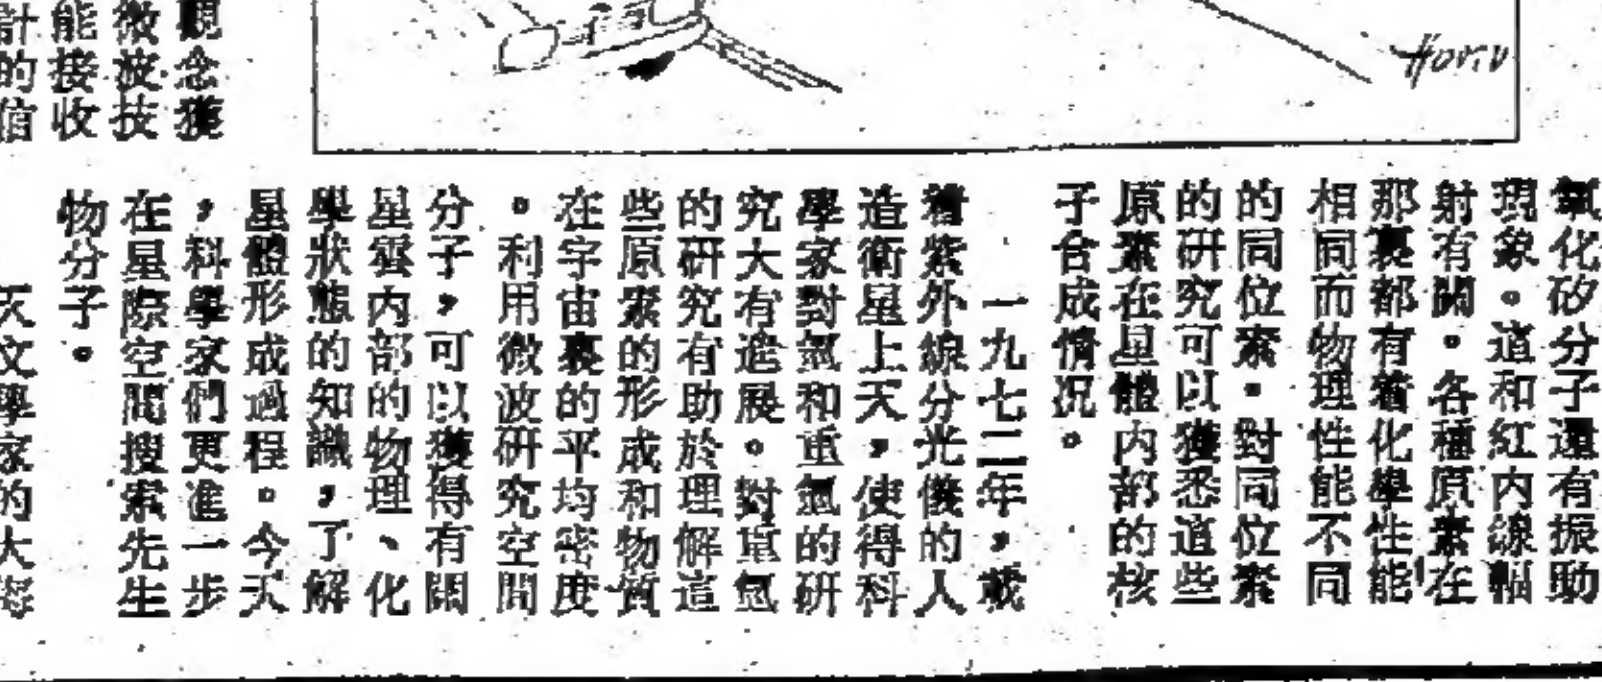 氧化矽分子還有振助
現象。這和紅內線輻
射有關。各種原素在
那裏都有着化學性能
相同而物理性能不同
的同位素。對同位素
的研究可以獲悉這些
原素在星體內部的核
子合成情况。
一九七二年，載
着紫外線分光儀的人
造衛星上天，使得科
學家對氫和重氫的研
究大有進展。對重氫
的研究有助於理解這
些原素的形成和物質
在宇宙裏的平均密度
。利用微波研究空間
分子，可以獲得有關
星雲內部的物理、化
學狀態的知識，了解
星體形成過程。今天
，科學家們更進一步
在星際空間搜索先生
物分子。
天文學家的大
觀念獲
微波技
能接收
計的信